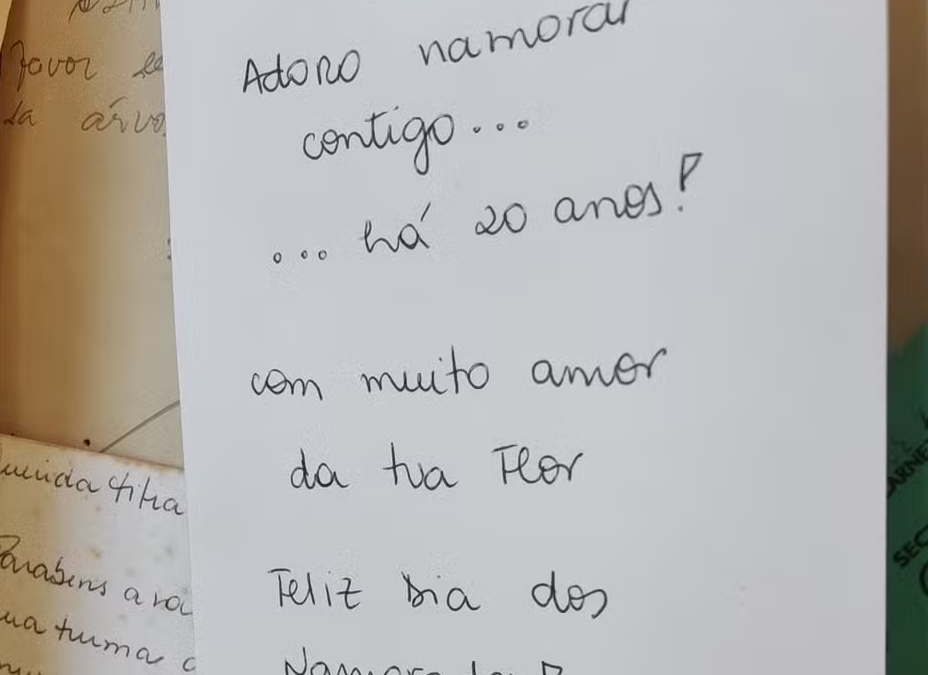 Adoro namorar
contigo...
...há 20 anos!
com muito amor
da tua Flor
Feliz Dia dos
favor
da
filha
Parabéns a
turma
SEC